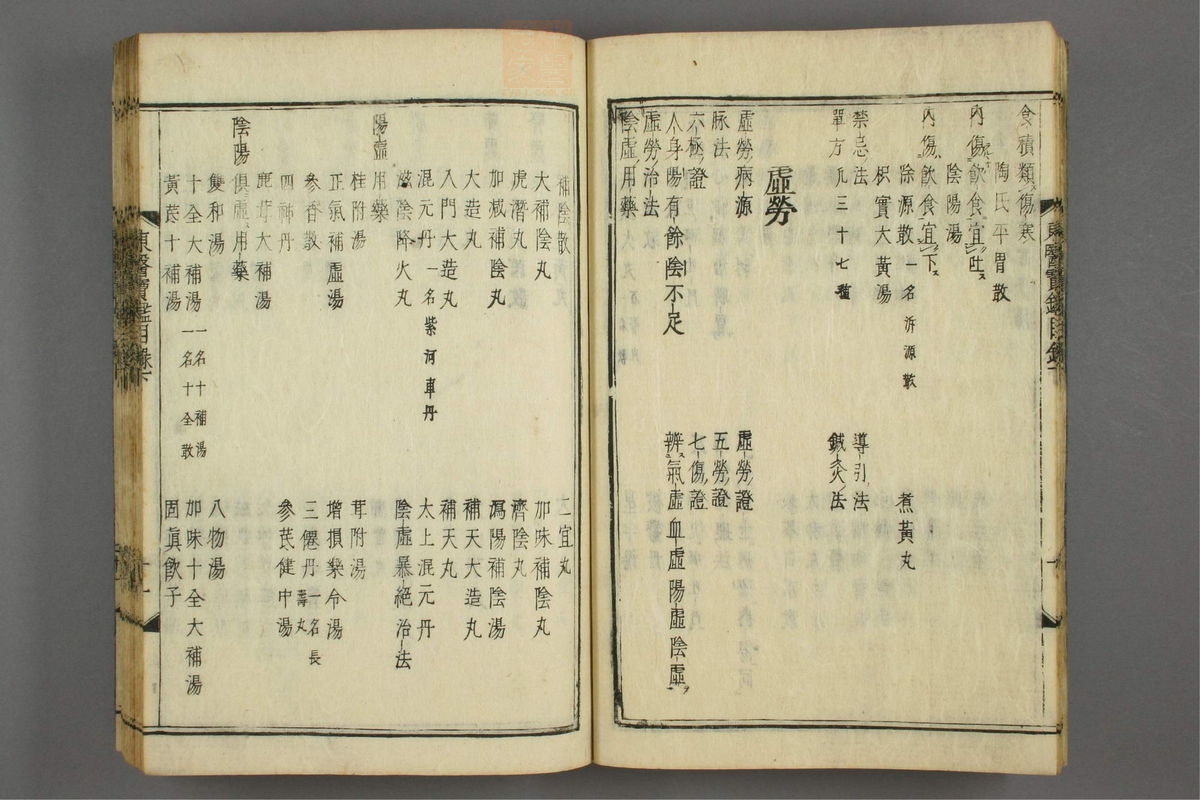 食積類傷寒
陶氏平胃散
內傷飲食宜吐
陰陽湯
內傷飲食宜下
除源散一名泝源散
煮黃丸
枳實大黃湯
禁忌法
導引法
單方凡三十七種
鍼灸法
虛勞
虛勞病源
虛勞證
脉法
五勞證
六極證
七傷證
人身陽有餘陰不足
辨氣虛血虛陽虛陰虛
虛勞治法
陰虛用藥
東醫寶鑑目錄下
補陰散
二宜丸
大補陰丸
加味補陰丸
虎潛丸
濟陰丸
加減補陰丸
瀉陽補陰湯
大造丸
補天大造丸
入門大造丸
補天丸
混元丹一名紫河車丹
大上混元丹
滋陰降火丸
陰虛暴絕治法
陽虛用藥
桂附湯
茸附湯
正氣補虛湯
增損樂令湯
參香散
三僊丹一名長壽丸
四神丹
參芪健中湯
鹿茸大補湯
陰陽俱虛用藥
雙和湯
八物湯
十全大補湯一名十補湯一名十全散
加味十全大補湯
黃芪十補湯
固眞飲子
東醫寶鑑目錄下